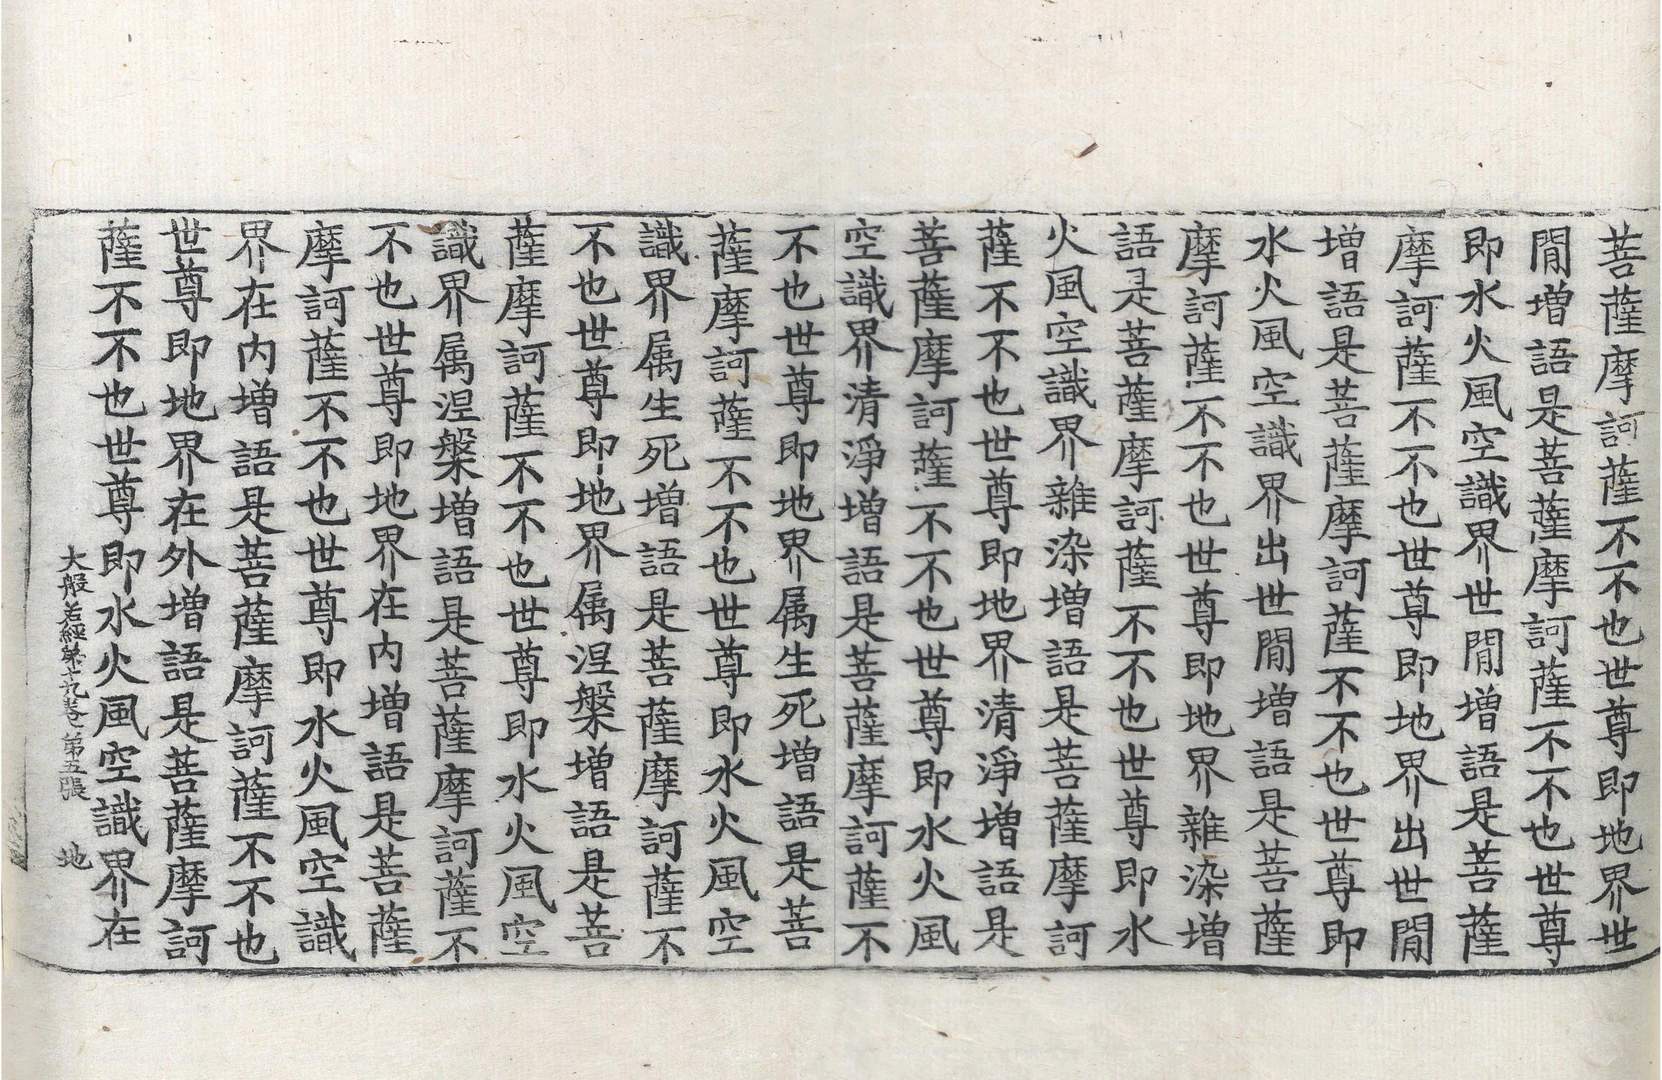 菩薩摩訶薩不不也世尊即地界世
閒增語是菩薩摩訶薩不不也世尊
即水火風空識界世閒增語是菩薩
摩訶薩不不也世尊即地界出世閒
增語是菩薩摩訶薩不不也世尊即
水火風空識界出世閒增語是菩薩
摩訶薩不不也世尊即地界雜染增
語是菩薩摩訶薩不不也世尊即水
火風空識界雜染增語是菩薩摩訶
薩不不也世尊即地界清淨增語是
菩薩摩訶薩不不也世尊即水火風
空識界清淨增語是菩薩摩訶薩不
不也世尊即地界属生死增語是菩
薩摩訶薩不不也世尊即水火風空
識界属生死增語是菩薩摩訶薩不
不也世尊即地界属涅槃增語是菩
薩摩訶薩不不也世尊即水火風空
識界属涅槃增語是菩薩摩訶薩不
不也世尊即地界在内增語是菩薩
摩訶薩不不也世尊即水火風空識
界在内增語是菩薩摩訶薩不不也
世尊即地界在外增語是菩薩摩訶
薩不不也世尊即水火風空識界在
大般若經第十九卷 第五張 地